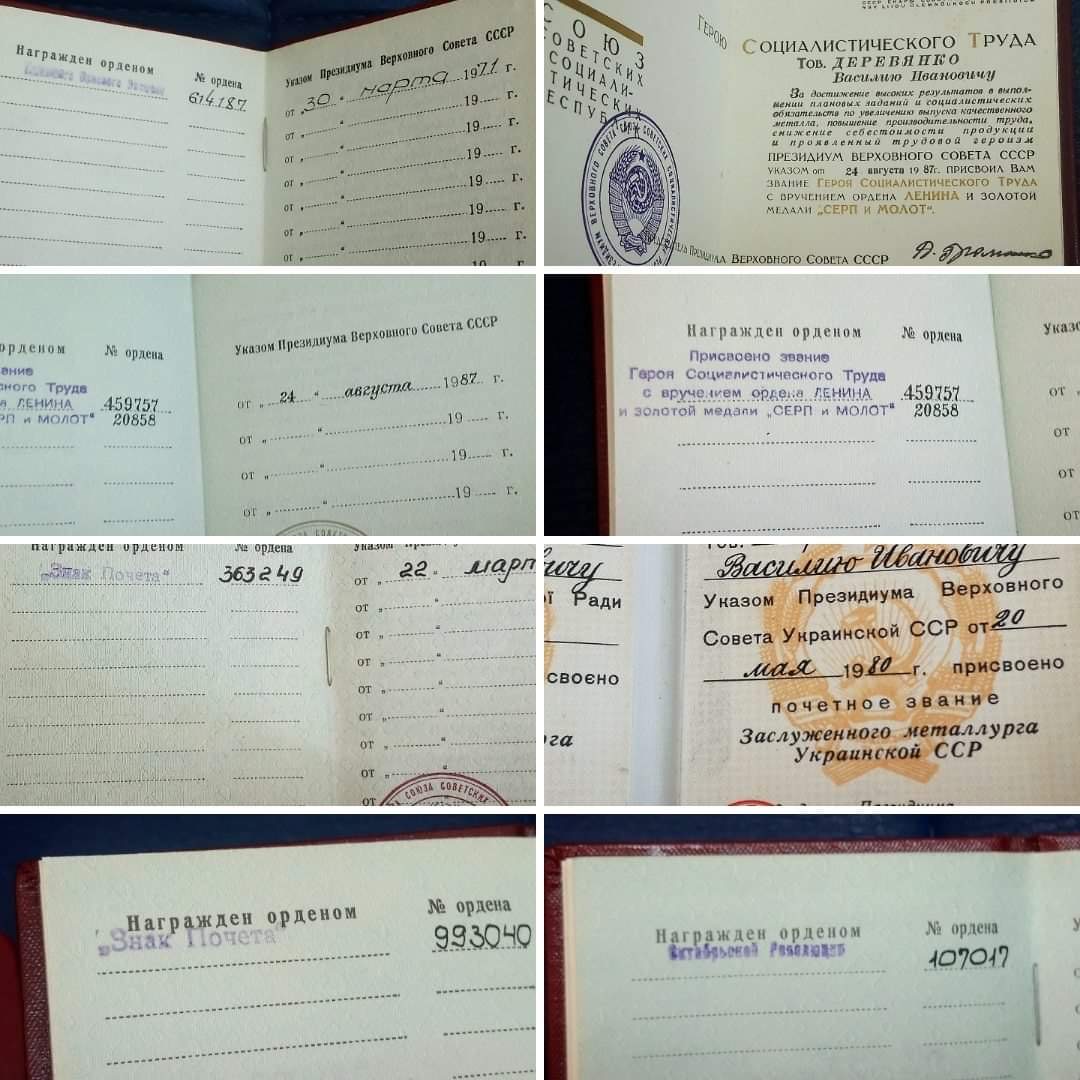 Награжден орденом
№ ордена
Трудового Красного Знамени
614187
Указом Президиума Верховного Совета СССР
от „ 30 “ марта 1971 г.
от „ “ 19 г.
от „ “ 19 г.
от „ “ 19 г.
от „ “ 19 г.
от „ “ 19 г.
от „ “ 19 г.
СОЮЗ
СОВЕТСКИХ
СОЦИАЛИ-
ТИЧЕСКИХ
ЕСПУБ
ГЕРОЮ
СОЦИАЛИСТИЧЕСКОГО ТРУДА
Тов. ДЕРЕВЯНКО
Василию Ивановичу
За достижение высоких результатов в выпол-
нении плановых заданий и социалистических
обязательств по увеличению выпуска качественного
металла, повышение производительности труда,
снижение себестоимости продукции
и проявленный трудовой героизм
ПРЕЗИДИУМ ВЕРХОВНОГО СОВЕТА СССР
УКАЗОМ от 24 августа 1987г. ПРИСВОИЛ ВАМ
ЗВАНИЕ ГЕРОЯ СОЦИАЛИСТИЧЕСКОГО ТРУДА
С ВРУЧЕНИЕМ ОРДЕНА ЛЕНИНА И ЗОЛОТОЙ
МЕДАЛИ „СЕРП И МОЛОТ“.
ВЕРХОВНОГО СОВЕТА СССР
рденом
№ ордена
ание
ного Труда
а ЛЕНИНА 459757
РП и МОЛОТ“ 20858
Указом Президиума Верховного Совета СССР
от „ 24 “ августа 1987 г.
от „ “ 19 г.
от „ “ 19 г.
от „ “ 19 г.
Награжден орденом
№ ордена
Присвоено звание
Героя Социалистического Труда
с вручением ордена ЛЕНИНА 459757
и золотой медали „СЕРП и МОЛОТ“ 20858
Указо
от „
от
от
от
Награжден орденом
№ ордена
„Знак Почета“ 363249
от „ 22 “ март
от „ “
от „ “
от „ “
от „ “
от „ “
от „ “
от „ “
от
СОЮЗА СОВЕТСКИХ
вичу
ї Ради
своєно
га
Василию Ивановичу
Указом Президиума Верховного
Совета Украинской ССР от 20
мая 1980 г. присвоено
почетное звание
Заслуженного металлурга
Украинской ССР
Награжден орденом
№ ордена
„Знак Почета“
993040
Награжден орденом
№ ордена
Октябрьской Революции
107017